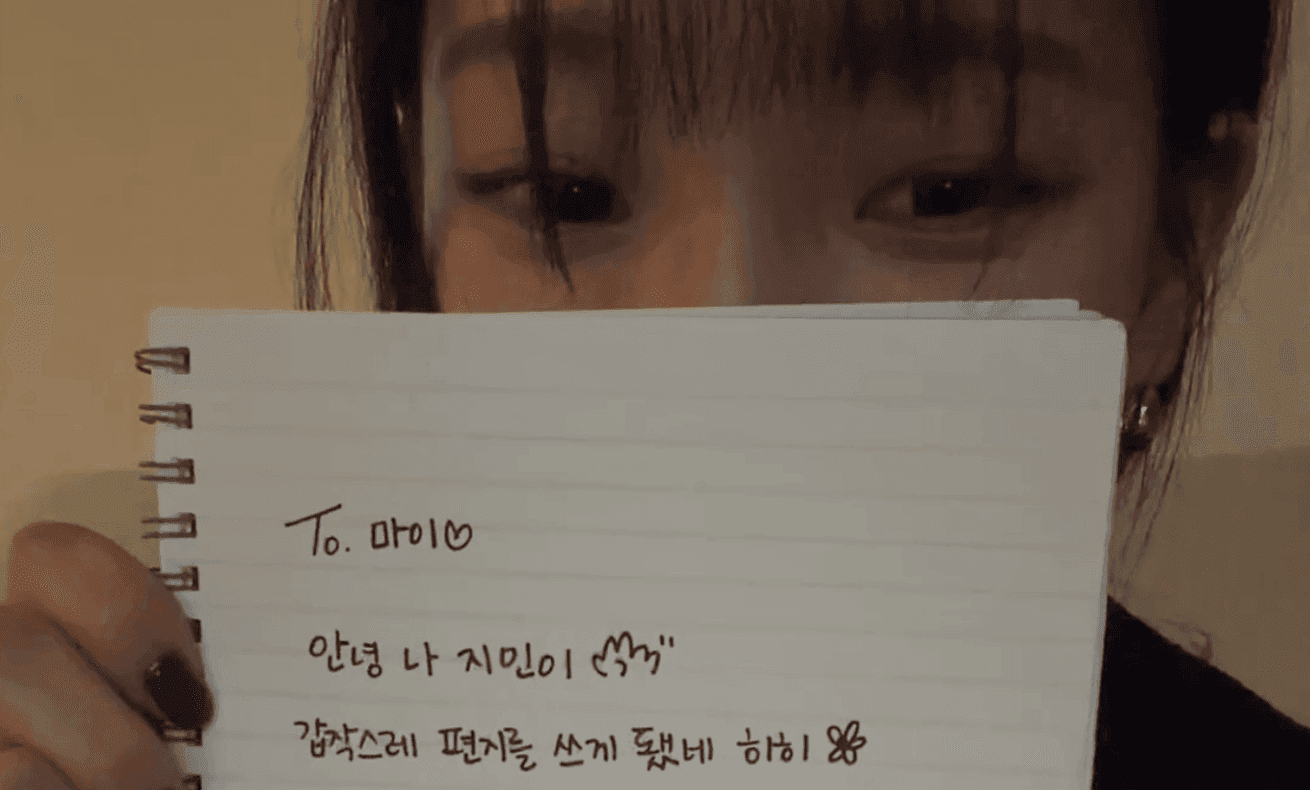 To. 마이♡
안녕 나 지민이
갑작스레 편지를 쓰게 됐네 히히